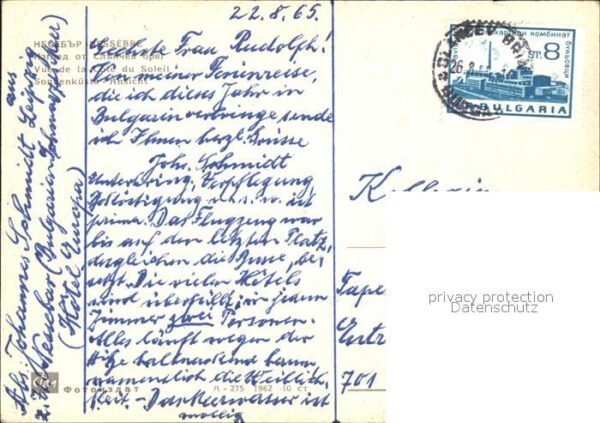 22.8.65
НЕСЕБЪР NESSÈBRE
Изглед от Слънчев бряг
Vue de la Côte du Soleil
Sonnenküste Ansicht
Werte Frau Rudolph!
Von meiner Ferienreise,
die ich dieses Jahr in
Bulgarien verbringe sende
ich Ihnen herzl. Grüsse
Joh. Schmidt
Unterbring., Verpflegung
u.s.w. ist
prima. Das Flugzeug war
bis auf den letzten Platz,
desgleichen die Busse, be-
setzt. Die vielen Hotels
sind überfüllt, in jedem
Zimmer zwei Personen.
Alles läuft wegen der
Hitze halbnackend herum
namentlich die Weiblich-
keit. Das Meerwasser ist
mollig
Abs. Johannes Schmidt Leipzig
z. Zt. Nessebar (Bulgarien Schwarzmeer)
(Hotel Europa)
Фотоиздат
А-275 1962
комбинат
8
BULGARIA
26.8
701
privacy protection
Datenschutz